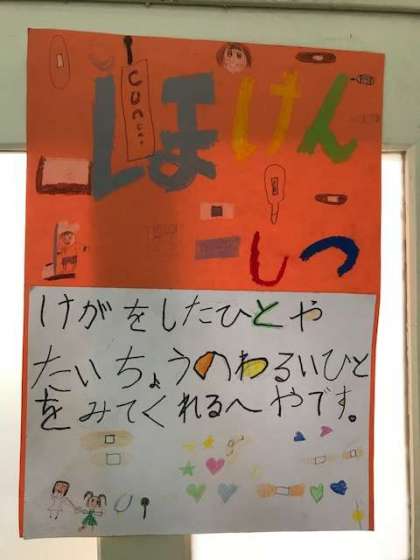 ほけん
しつ
けがをしたひとや
たいちょうのわるいひと
をみてくれるへやです。